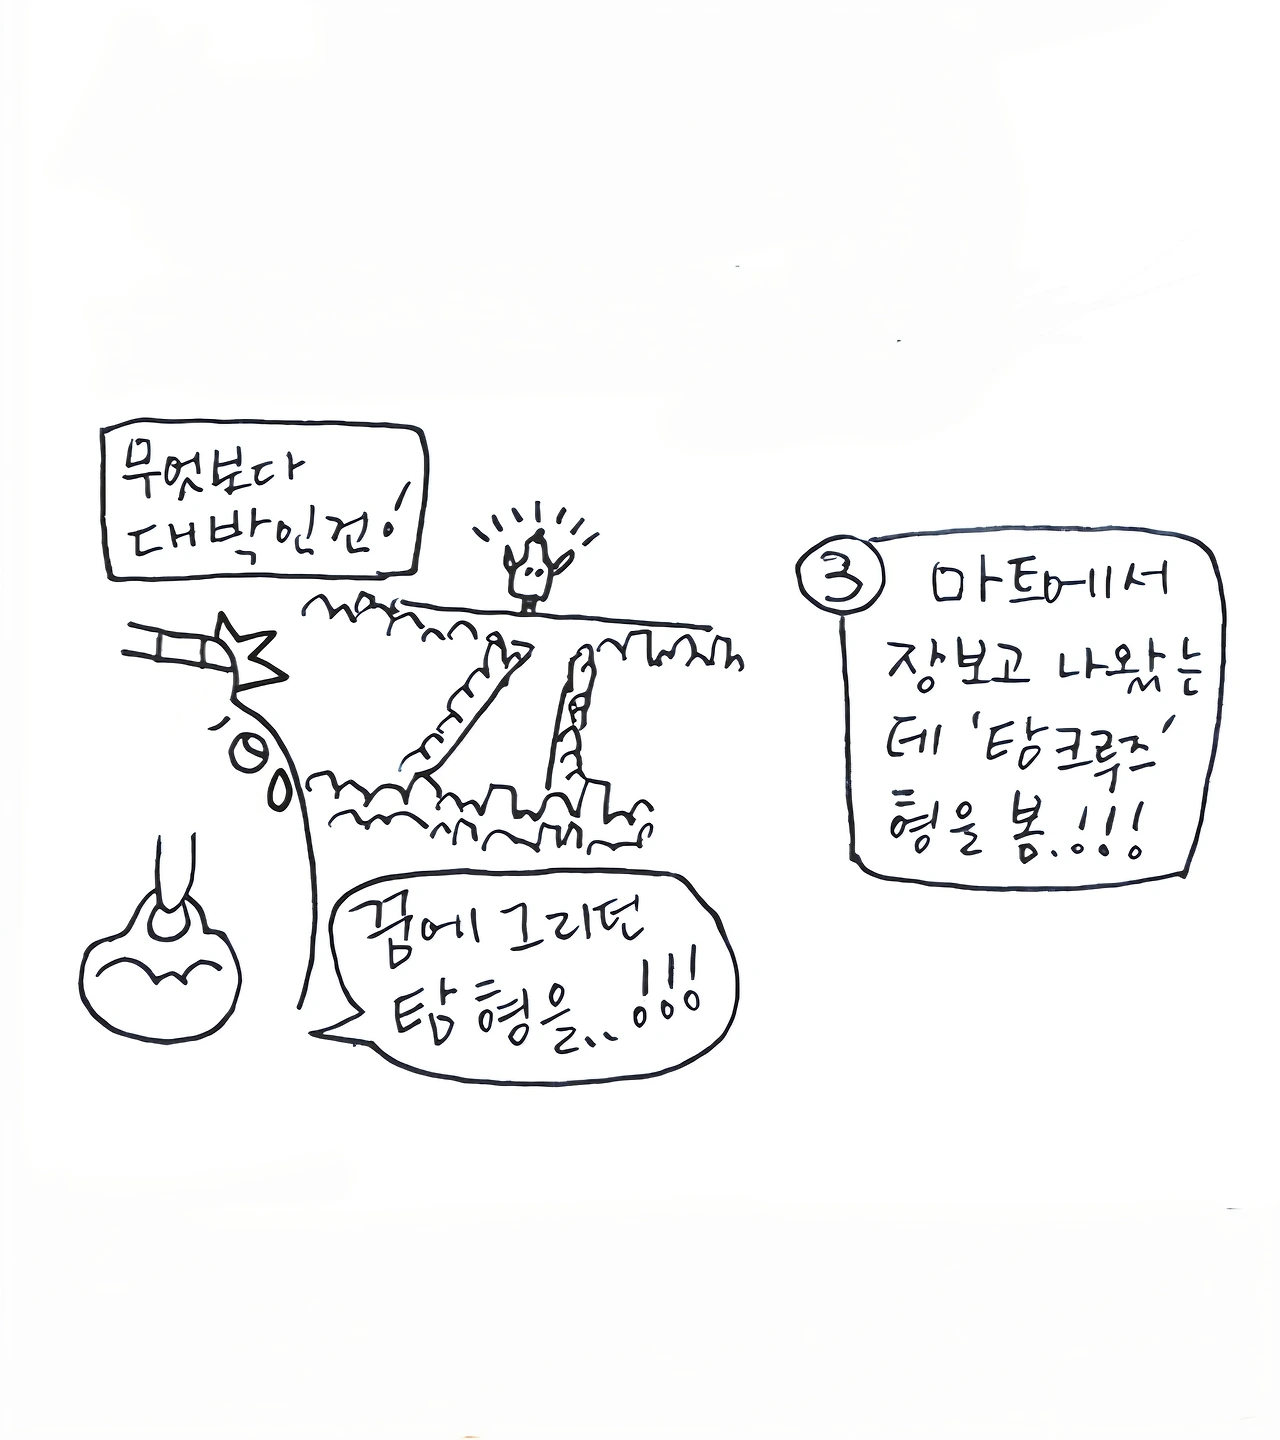 무엇보다
대박인건!
꿈에 그리던
탐 형을..!!!
③ 마트에서
장보고 나왔는
데 '탐크루즈'
형을 봄.!!!